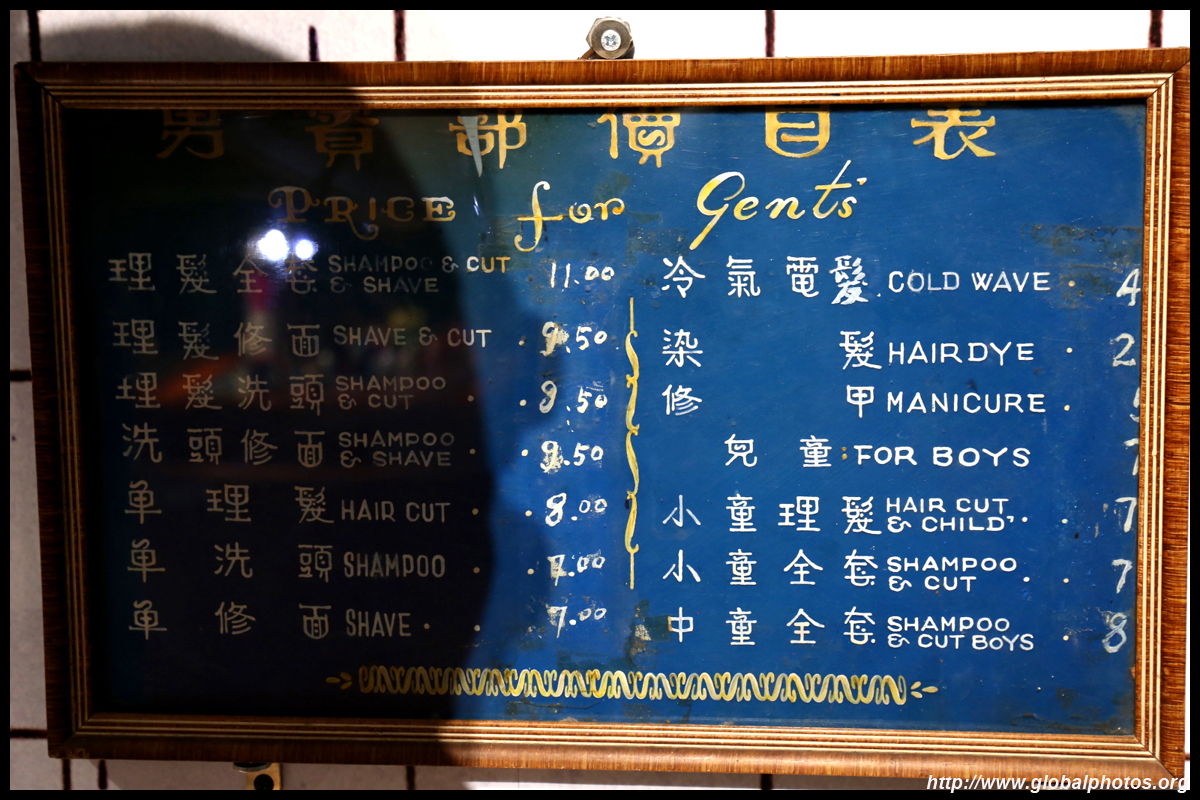 男賓部價目表
PRICE for Gents'
理髮全套 SHAMPOO & CUT & SHAVE 11.00
理髮修面 SHAVE & CUT 9.50
理髮洗頭 SHAMPOO & CUT 9.50
洗頭修面 SHAMPOO & SHAVE 9.50
单理髮 HAIR CUT 8.00
单洗頭 SHAMPOO 7.00
单修面 SHAVE 7.00
冷氣電髮 COLD WAVE 4
染髮 HAIRDYE 2
修甲 MANICURE
兒童: FOR BOYS
小童理髮 HAIR CUT & CHILD' 7
小童全套 SHAMPOO & CUT 7
中童全套 SHAMPOO & CUT BOYS 8
http://www.globalphotos.org